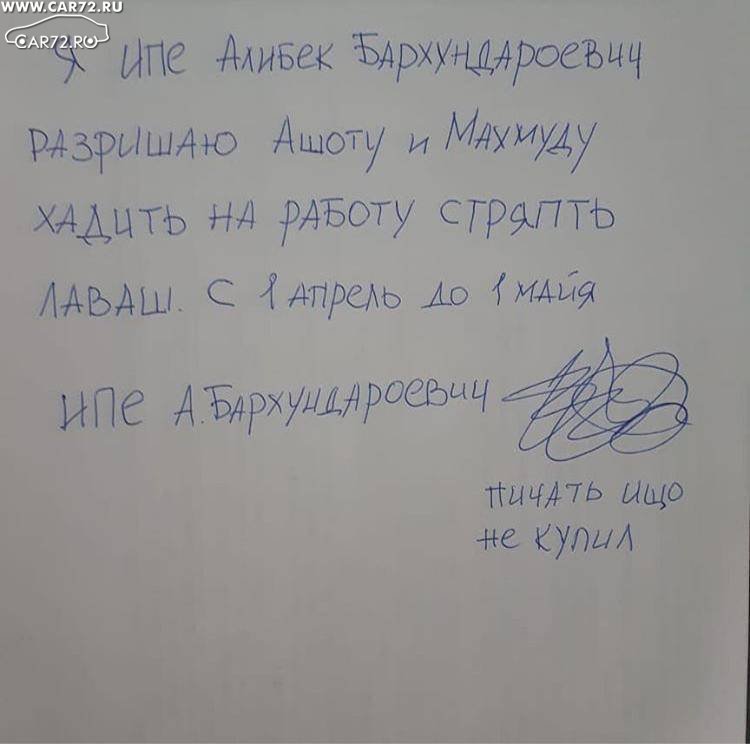 WWW.CAR72.RU
CAR72.RU
Я ИПЕ АЛИБЕК БАРХУНДАРОЕВИЧ
РАЗРИШАЮ АШОТУ И МАХМУДУ
ХАДИТЬ НА РАБОТУ СТРЯПТЬ
ЛАВАШ. С 1 АПРЕЛЬ ДО 1 МАЙЯ
ИПЕ А.БАРХУНДАРОЕВИЧ
ПИЧАТЬ ИЩО
НЕ КУПИЛ